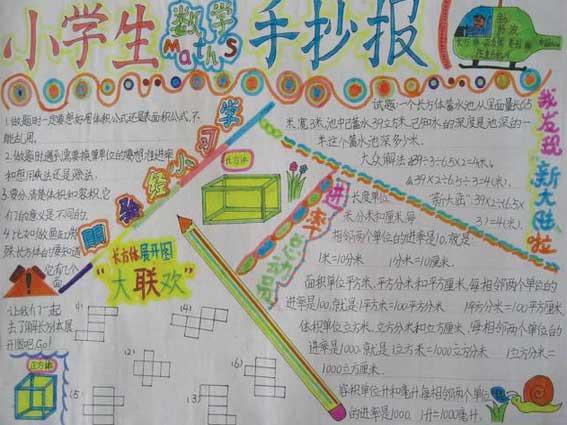 小学生数学手抄报
Maths
1.做题时一定要想好用体积公式还是表面积公式,不
能乱用。
2.做题时遇到需要换算单位的要想准进率
和想用乘法还是除法。
3.要分清楚体积和容积,它
们的意义是不同的。
学习小经验
长方体
长方体展开图
"大联欢"
让我们一起
去了解长方体展
开图吧,Go!
正方体
(1)
(2)
(3)
(4)
(5)
(6)
我发现新大陆啦
试题:一个长方体蓄水池从里面量长6.5
米,宽3米,池中已蓄水39立方米,已知水的深度是池深的一
米这个蓄水池深多少米.
大众解法
39÷2÷6.5÷3=
进率
长度单位
米,分米和厘米每
相邻两个单位的进率是10,就是:
1米=10分米 1分米=10厘米.
面积单位平方米,平方分米和平方厘米,每相邻两个单位的
进率是100,就是1平方米=100平方分米 1平方分米=100平方厘米
体积单位立方米,立方分米和立方厘米,每相邻两个单位的
进率是1000,就是1立方米=1000立方分米 1立方分米=
1000立方厘米.
容积单位升和毫升,每相邻两个单位
的进率是1000, 1升=1000毫升.